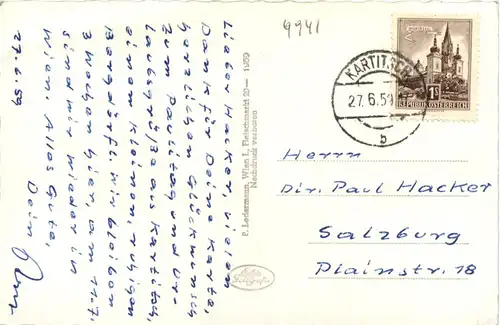 Lieber Hacker, vielen
Dank für Deine Karte,
herzlichen Glückwunsch
zum Paulitag und Ur-
laubsgrüße aus Kartitsch,
einem kleinen, ruhigen
Bergdörfl. Wir bleiben
3 Wochen hier, am 11.7.
sind wir wieder in
Wien. Alles Gute,
Dein
27.6.59
P. Ledermann, Wien I., Fleischmarkt 20 — 1959
Nachdruck verboten
9941
KARTITSCH
27.6.59
b
1S
REPUBLIK ÖSTERREICH
Herrn
Dir. Paul Hacker
Salzburg
Plainstr. 18